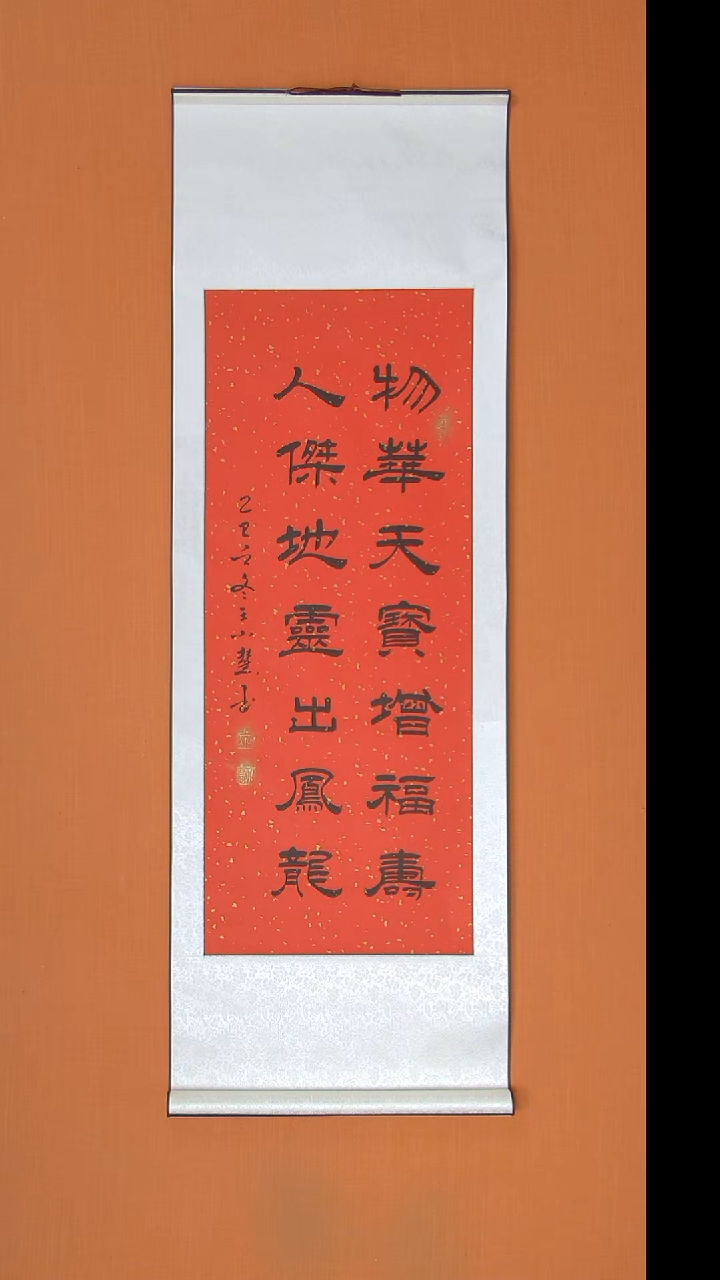 物華天寶增福壽
人傑地靈出鳳龍
乙巳立冬王小慧書